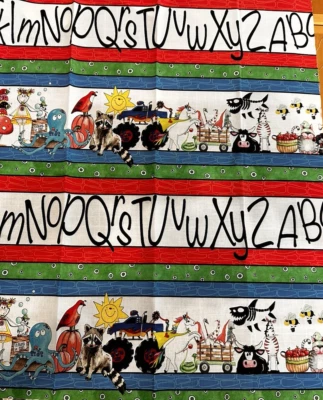 klmNOPQrsTUuwXyZABC
mNOPQrsTUuwXyZABC